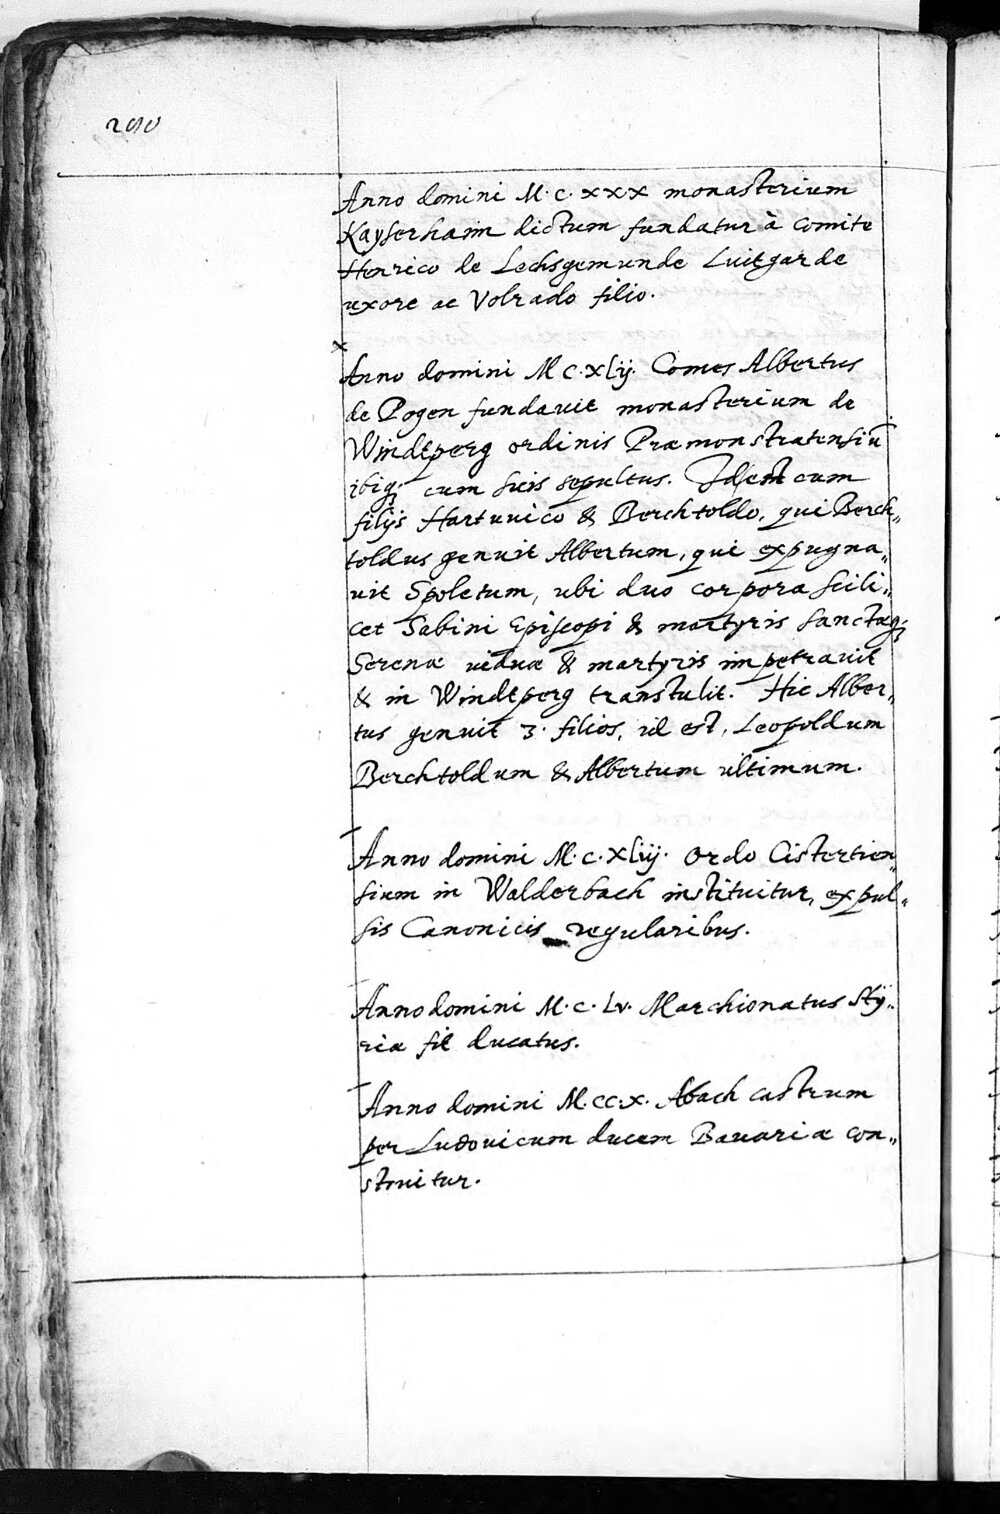 200
Anno domini M. C. XXX monasterium
Kayserhaim dictum fundatur à Comite
Henrico de Lechsgemunde Luitgarde
uxore ac Volrado filio.
x
Anno domini M C. XLij. Comes Albertus
de Pogen fundavit monasterium de
Windtperg ordinis Præmonstratensiū
ibiq; cum suis sepultus. Id est cum
filijs Hartuuico & Berchtoldo, qui Berch„
toldus genuit Albertum, qui expugna„
uit Spoletum, ubi duo corpora scili„
cet Sabini Episcopi & martyris sanctæq;
Serenæ viduæ & martyris impetrauit
& in Windtperg transtulit. Hic Alber„
tus genuit 3. filios, id est, Leopoldum
Berchtoldum & Albertum ultimum.
Anno domini M. C. XLiij. Ordo Cistertien„
sium in Walderbach instituitur, expul„
sis Canonicis regularibus.
Anno domini M. C. LV. Marchionatus Sty„
riæ fit ducatus.
Anno domini M. CC. X. Abach castrum
per Ludouicum ducem Bauariæ con„
struitur.